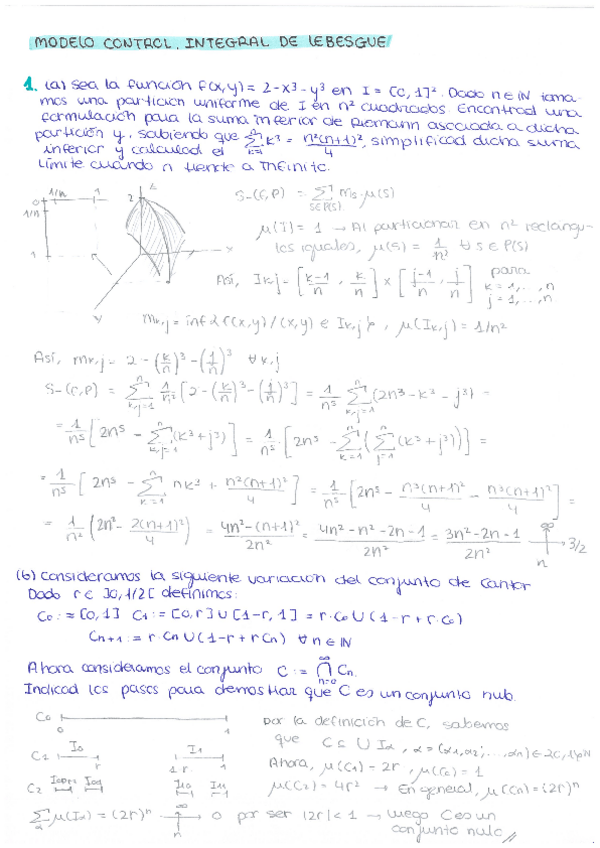 MODELO CONTROL. INTEGRAL DE LEBESGUE
1. (a) Sea la función f(x,y) = 2-x³-y³ en I = [0,1]². Dado n∈ℕ toma-
mos una partición uniforme de I en n² cuadrados. Encontrad una
formulación para la suma inferior de Riemann asociada a dicha
partición y, sabiendo que Σ_{k=1}^{n} k³ = n²(n+1)²/4, simplificad dicha suma
inferior y calculad el
límite cuando n tiende a infinito.
0 1/n 1
1/n
1
2
x
y
S-(f,P) = Σ_{S∈P(S)} m_s·μ(S)
μ(I) = 1 → Al particionar en n² rectángu-
los iguales, μ(S) = 1/n² ∀ S∈P(S)
Así, I_{k,j} = [k-1/n, k/n] × [j-1/n, j/n] para k=1,...,n j=1,...,n
m_{k,j} = inf{f(x,y)/(x,y) ∈ I_{k,j}}, μ(I_{k,j}) = 1/n²
Así, m_{k,j} = 2-(k/n)³-(j/n)³ ∀k,j
S-(f,P) = Σ_{k,j=1}^{n} 1/n² [2-(k/n)³-(j/n)³] = 1/n⁵ Σ_{k,j=1}^{n} (2n³-k³-j³) =
= 1/n⁵ [2n⁵ - Σ_{k,j=1}^{n} (k³+j³)] = 1/n⁵ · [2n⁵ - Σ_{k=1}^{n} (Σ_{j=1}^{n} (k³+j³))] =
= 1/n⁵ [2n⁵ - Σ_{k=1}^{n} nk³ + n²(n+1)²/4] = 1/n⁵ [2n⁵ - n³(n+1)²/4 - n³(n+1)²/4] =
= 1/n² (2n² - 2(n+1)²/4) = 4n²-(n+1)²/2n² = 4n²-n²-2n-1/2n² = 3n²-2n-1/2n² → 3/2
∞
n
(b) Consideramos la siguiente variación del conjunto de Cantor
Dado r∈]0,1/2[ definimos:
C₀ := [0,1] C₁ := [0,r]∪[1-r,1] = r·C₀∪(1-r+rC₀)
C_{n+1} := r·C_n∪(1-r+rC_n) ∀n∈ℕ
Ahora consideramos el conjunto C := ∩_{n=0}^{∞} C_n.
Indicad los pasos para demostrar que C es un conjunto nulo.
C₀
0 1
I₀ I₁
C₂
r 1-r
C₂ I₀₁ I₁₀ I₁₁
Por la definición de C, sabemos
que C ⊆ ∪ I_α, α=(α₁,α₂,...,α_n)
Ahora, μ(C₁) = 2r, μ(C₀) = 1
μ(C₂) = 4r² → En general, μ(C_n) = (2r)ⁿ
Σ_α μ(I_α) = (2r)ⁿ → 0 por ser |2r|<1 → Luego C es un
∞
n
conjunto nulo